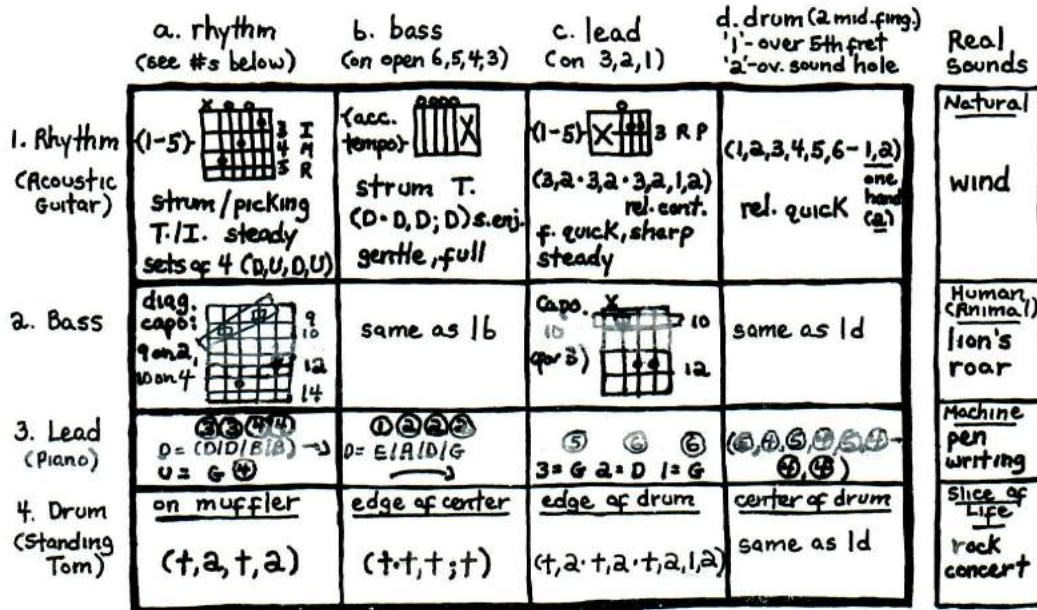 a. rhythm
(see #s below)
b. bass
(on open 6,5,4,3)
c. lead
(on 3,2,1)
d. drum (2 mid.fing.)
'1'-over 5th fret
'2'-ov. sound hole
Real
Sounds
1. Rhythm
(Acoustic
Guitar)
(1-5)
x o o
3 I
4 M
5 R
strum/picking
T./I. steady
sets of 4 (D,U,D,U)
(acc.
tempo)
oooo
X
strum T.
(D·D,D; D) s.enj.
gentle, full
(1-5)
o
X
3 R P
(3,2·3,2·3,2,1,2)
rel. cont.
f. quick, sharp
steady
(1,2,3,4,5,6-1,2)
one
hand
(2)
rel. quick
Natural
wind
2. Bass
diag.
capo:
9 on 2,
10 on 4
9
10
12
14
same as 1b
capo.
10
x
10
12
same as 1d
Human
(Animal)
lion's
roar
3. Lead
(Piano)
3 3 4 4
D= (D/D/B/B) →
U = G 4
1 2 2 2
D= E/A/D/G
5 6 6
3=G 2=D 1=G
Machine
pen
writing
4. Drum
(Standing
Tom)
on muffler
(t,2,t,2)
edge of center
(t·t,t;t)
edge of drum
(t,2·t,2·t,2,1,2)
center of drum
same as 1d
Slice of
Life
rock
concert